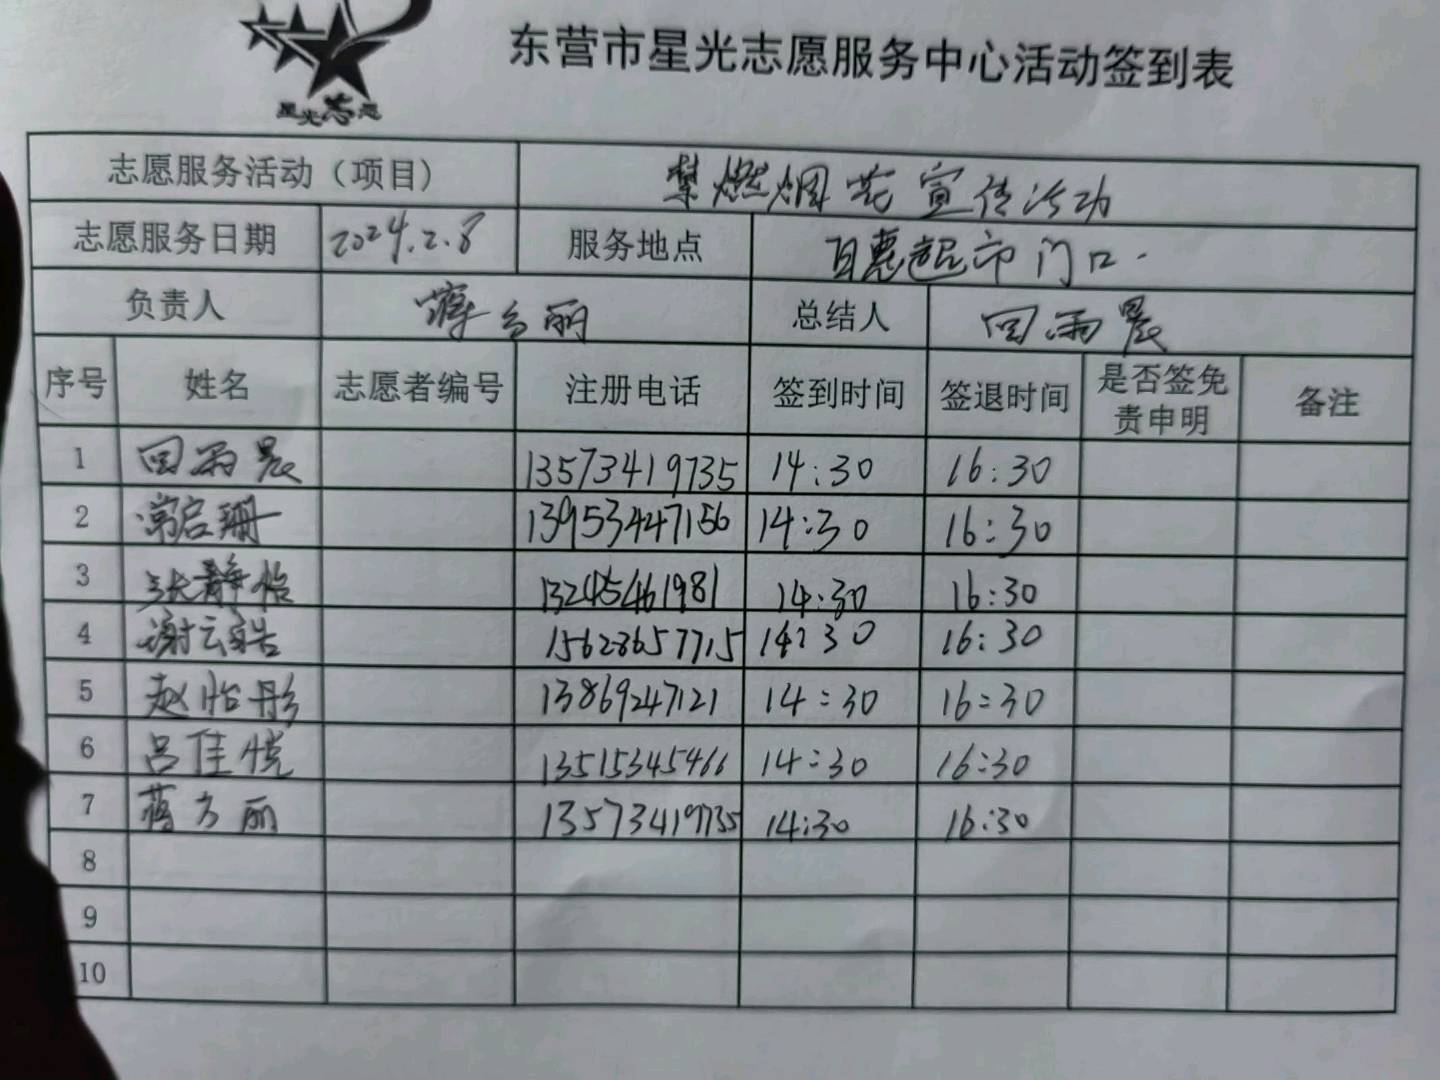 星光志愿
东营市星光志愿服务中心活动签到表
志愿服务活动（项目） 禁燃烟花宣传活动
志愿服务日期 2024.2.8 服务地点 百惠超市门口.
负责人 蒋方丽 总结人 回雨晨
序号 姓名 志愿者编号 注册电话 签到时间 签退时间 是否签免责申明 备注
1 回雨晨 13573419735 14:30 16:30
2 常启珊 13953447156 14:30 16:30
3 张静怡 13245461981 14:30 16:30
4 谢云皓 15628657715 14:30 16:30
5 赵怡彤 13869247121 14:30 16:30
6 吕佳悦 13515345466 14:30 16:30
7 蒋方丽 13573419735 14:30 16:30
8
9
10